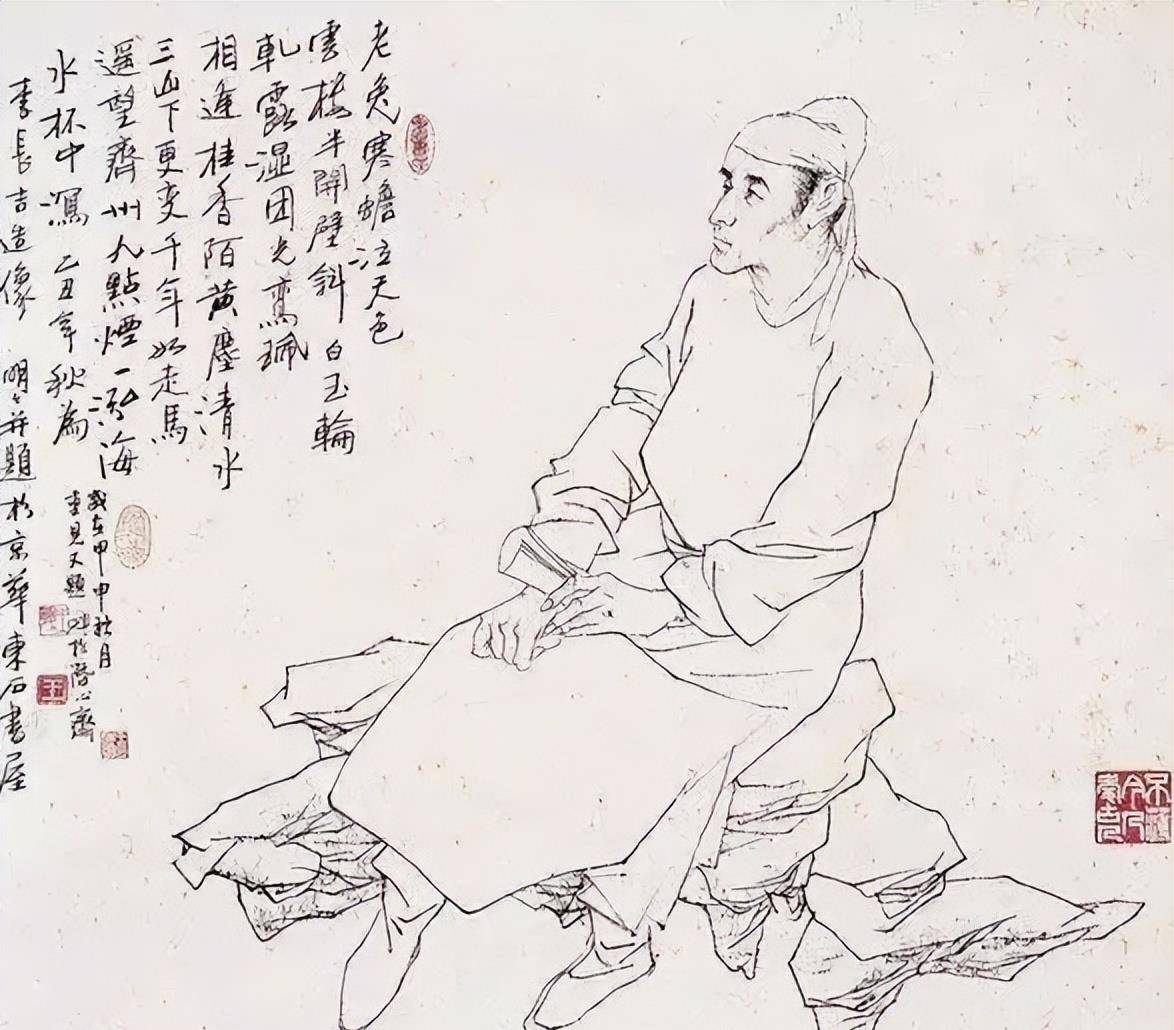 老兔寒蟾泣天色
雲樓半開壁斜白玉輪
軋露湿团光鸞珮
相逢桂香陌黄塵清水
三山下更变千年如走馬
遥望齊州九點煙一泓海
水杯中瀉 乙丑年秋為
李長吉造像 明〻并題於京華東石書屋
歲在甲申秋月
重見又題於心齋